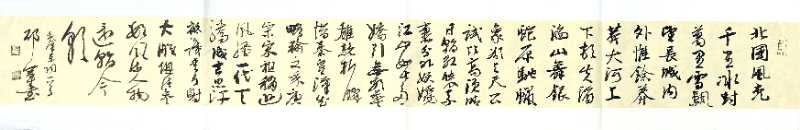 北国风光
千里冰封
万里雪飘
望长城内
外惟余莽
莽大河上
下顿失滔
滔山舞银
蛇原驰蜡
象欲与天公
试比高须晴
日看红装素
裹分外妖娆
江山如此多
娇引无数英
雄竞折腰
惜秦皇汉武
略输文采唐
宗宋祖稍逊
风骚一代天
骄成吉思汗
只识弯弓射
大雕俱往矣
数风流人物
还看今
朝